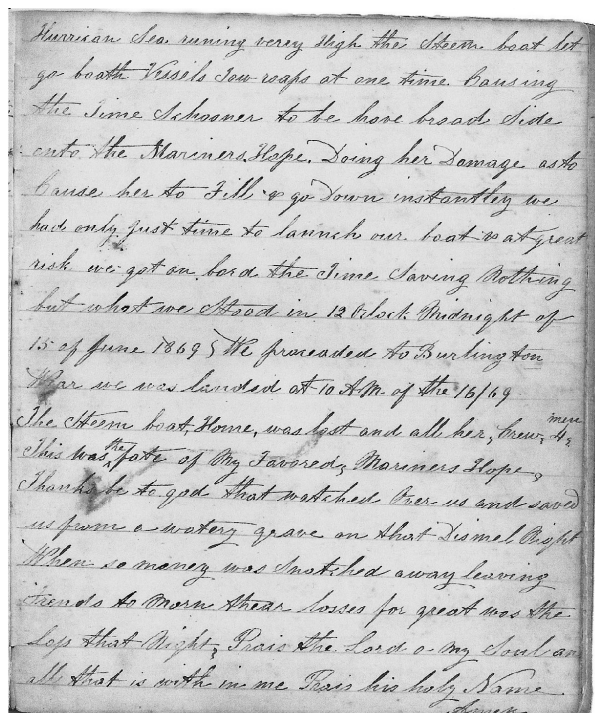 Hurrican Sea runing verey High the Steem boat let
go booth Vessels Tow roaps at one time. Causing
the Time Schooner to be hove broad Side
onto the Mariners Hope. Doing her Damage as to
Cause her to Fill & go Down instantley we
had only just time to launch our boat & at great
risk we got on bord the Time Saving Nothing
but what we Stood in 12 Oclock Midnight of
15 of June 1869 We proseaded to Burlington
Whar we was landed at 10 AM. of the 16/69
The Steem boat, Home, was lost and all her, Crew, men
This was the fate of My Favored, Mariners Hope,
Thanks be to god that watched Over us and saved
us from a watery grave on that Dismel Night
When so maney was Snatched away leaving
frends to Morn thear losses for great was the
Loss that Night, Prais the Lord o my Soul an
all that is with in me Prais his holy Name
Amen